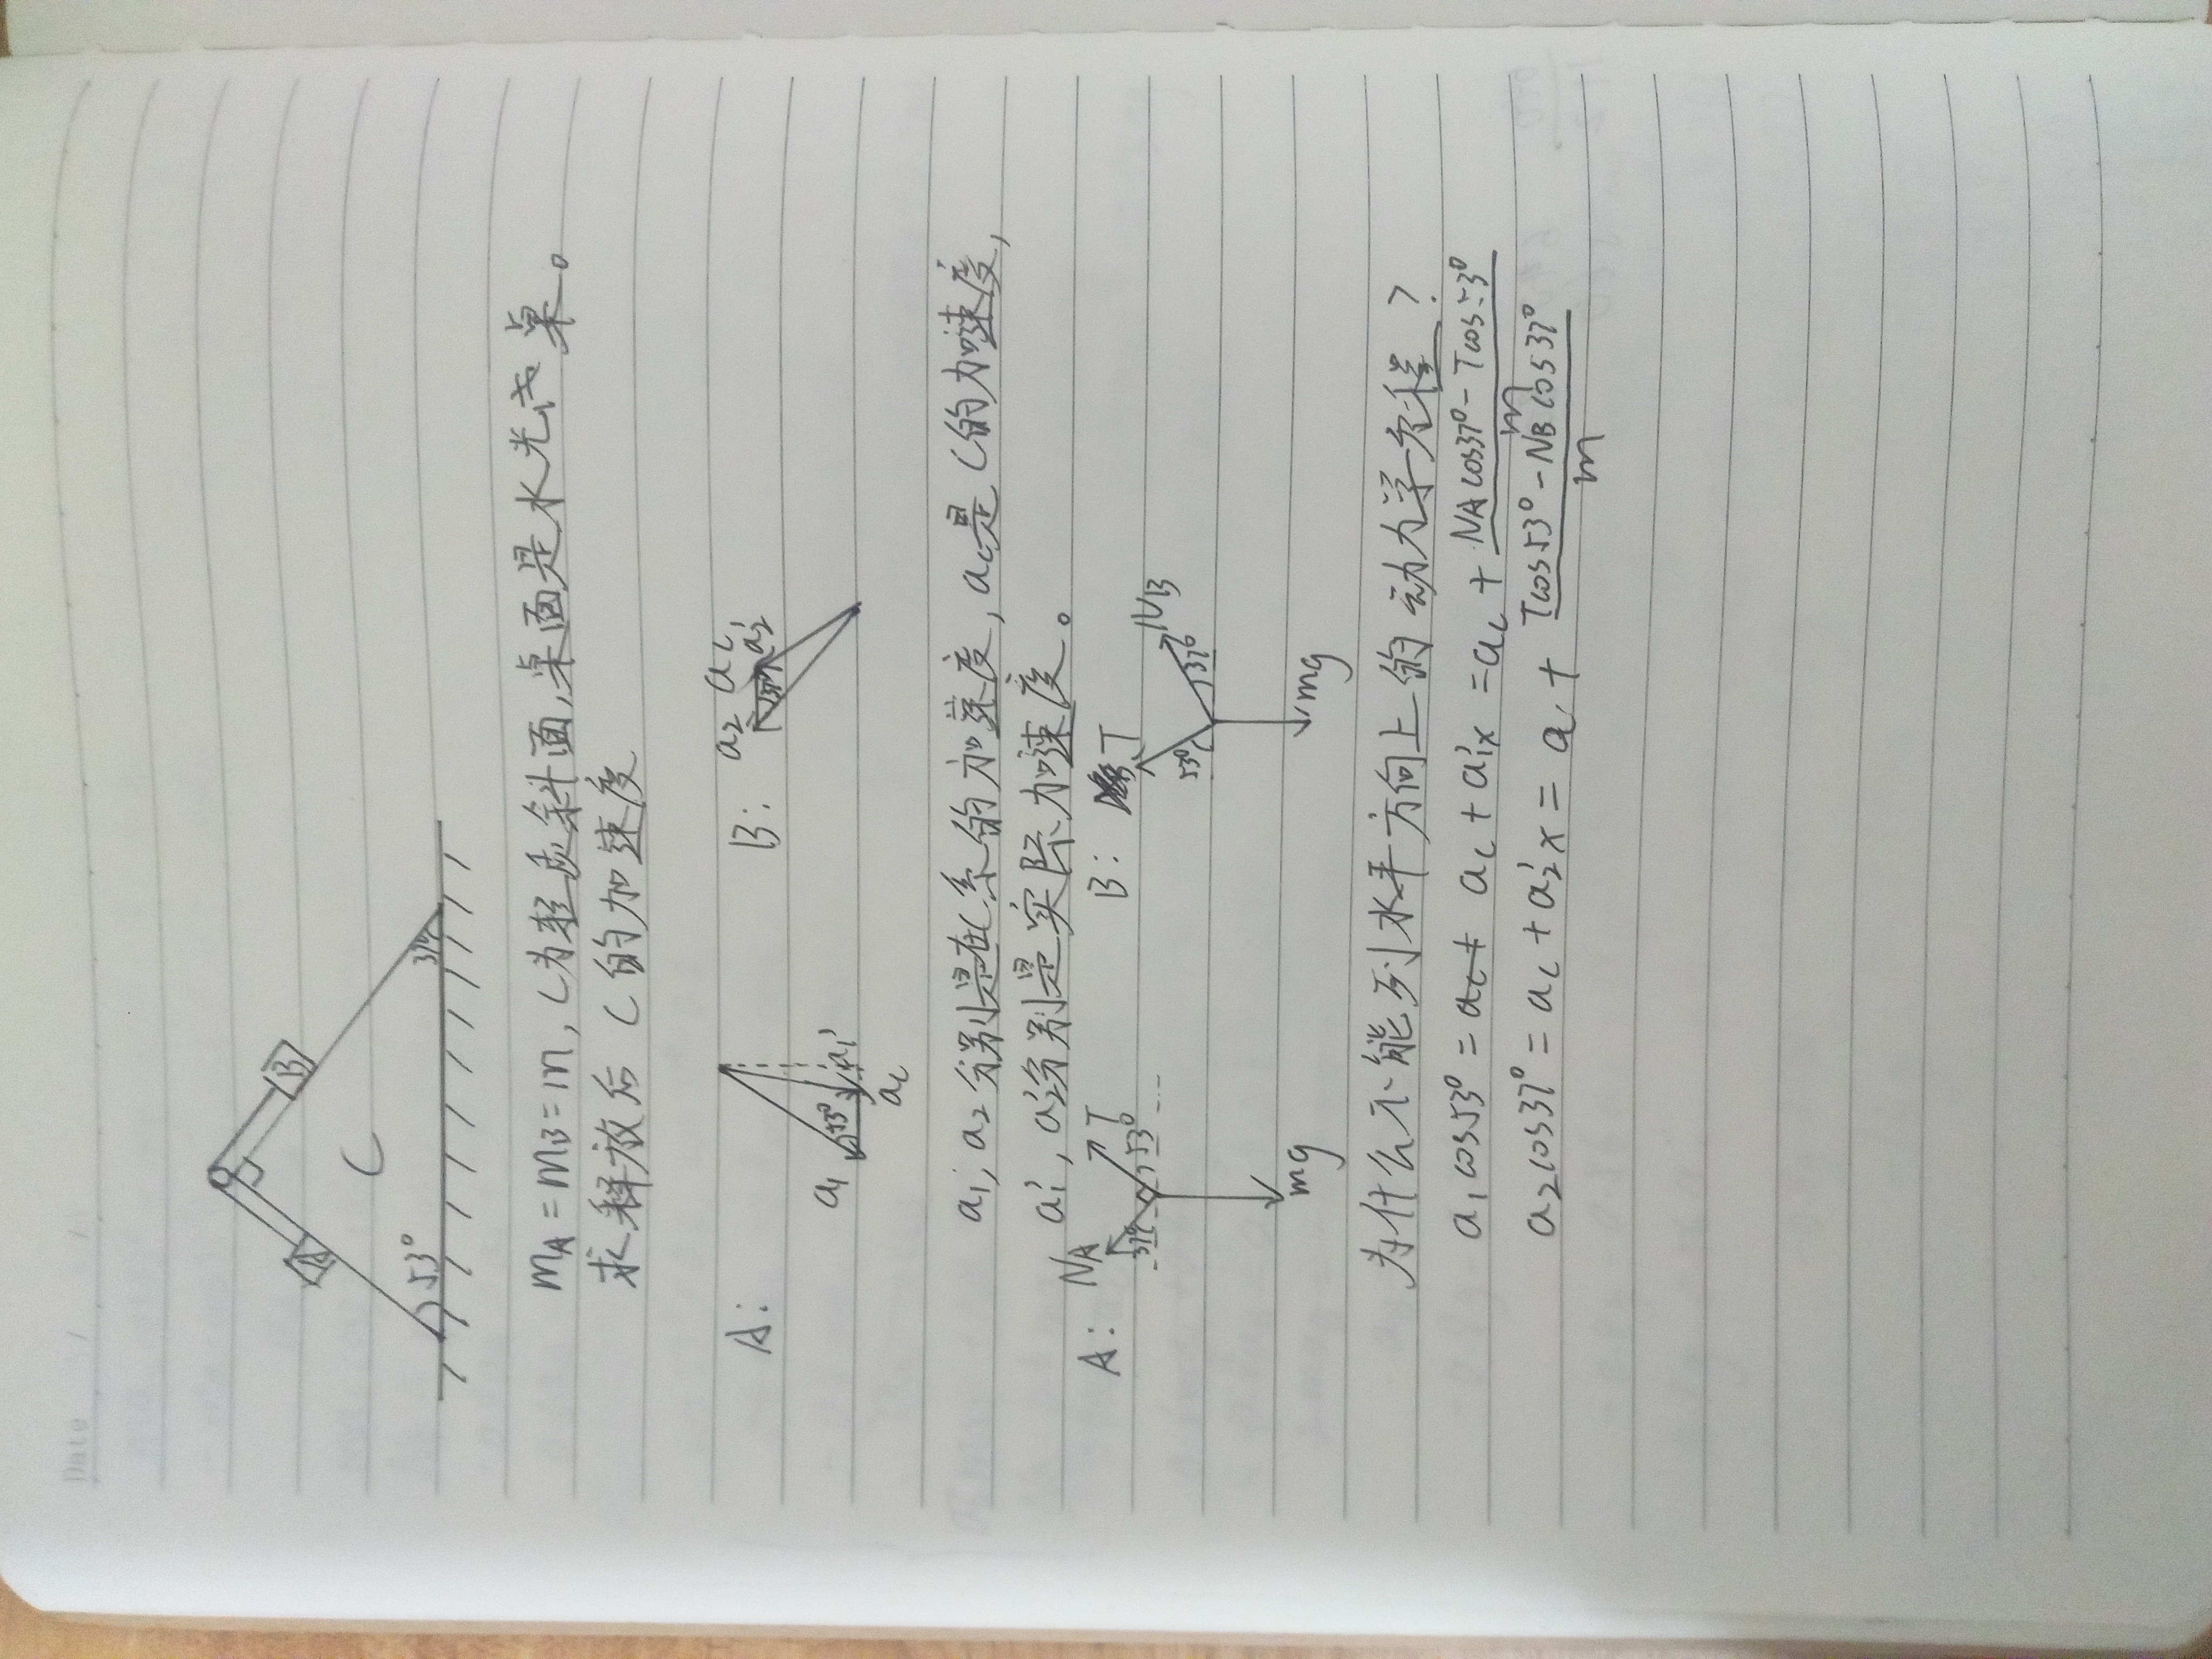 Date / /
A B C 53° 37°
mA = mB = m, C为轻质斜面,桌面是水光式桌。
求释放后 C 的加速度
A: a1 53° a1' ac
B: a2 ac a2' 37°
a1, a2分别是在C系的加速度, ac是C的加速度,
a1', a2'分别是实际加速度。
A: NA 37° T 53° mg
B: T 53° NB 37° mg
为什么不能列水平方向上的动力学方程?
a1cos53° = ac + a1'x = ac + (NAcos37° - Tcos53°)/m
a2cos37° = ac + a2'x = ac + (Tcos53° - NBcos37°)/m